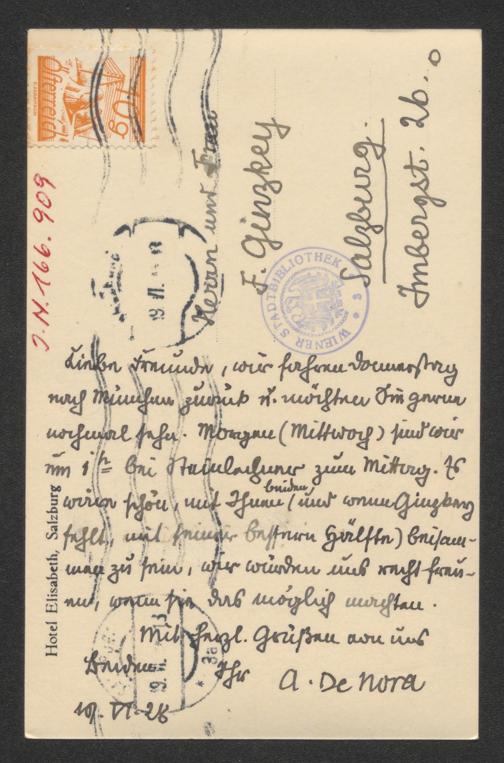 Liebe Freunde, wir fahren Donnerstag
nach München zurück u. möchten Sie gerne
nochmal sehn. Morgen (Mittwoch) sind wir
um 1 h bei Steinlechner zum Mittag. Es
wäre schön, mit Ihnen beiden (und wenn Ginzkey
fehlt, mit seiner bessern Hälfte) beisam-
men zu sein, wir würden uns recht freu-
en, wenn Sie das möglich machten.
Mit herzl. Grüßen von uns
beiden Ihr A. De Nora
19. VI. 28
Herrn und Frau
F. Ginzkey
Salzburg.
Imbergst. 26.
J.N. 166.909
Hotel Elisabeth, Salzburg
WIENER STADTBIBLIOTHEK
Österreich
19.VI.
19.VI.